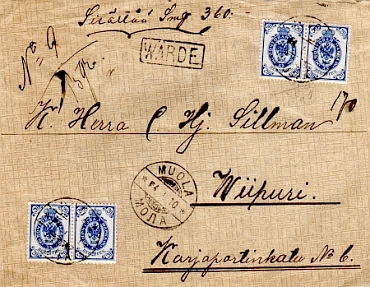 Sisältää Smg 360.-
No 9
WARDE
K. Herra C Hj. Sillman
MUOLA
10
МОЛА
Wiipuri.
Karjaportinkatu No 6.